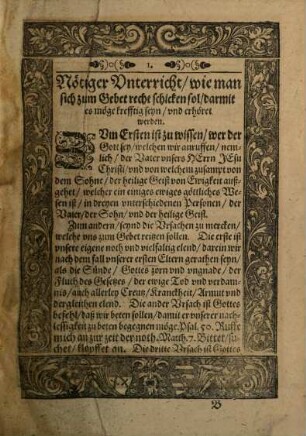 1.
Nötiger Vnterricht / wie man
sich zum Gebet recht schicken sol / darmit
es möge krefftig seyn / vnd erhöret
werden.
ZVm Ersten ist zu wissen / wer der
Gott sey / welchen wir anruffen / nem-
lich / der Vater vnsers HErrn JEsu
Christi / vnd von welchem zusampt von
dem Sohne / der heilige Geist von Ewigkeit auß-
gehet / welcher ein einiges ewiges göttliches We-
sen ist / in dreyen vnterschiedenen Personen / der
Vater / der Sohn / vnd der heilige Geist.
Zum andern / seynd die Vrsachen zu mercken /
welche vns zum Gebet reitzen sollen. Die erste ist
vnsere eigene noch vnd vielfaltig elend / darein wir
nach dem fall vnserer ersten Eltern gerathen seyn /
als die Sünde / Gottes zorn vnd vngnade / der
Fluch des Gesetzes / der ewige Tod vnd verdam-
nis / auch allerley Creutz / Kranckheit / Armut vnd
dergleichen elend. Die ander Vrsach ist Gottes
befehl / daß wir beten sollen / damit er vnserer nach-
lessigkeit zu beten begegnen möge. Psal. 50. Ruffe
mich an zur zeit der noth. Math. 7. Bittet / su-
chet / klopffet an. Die dritte Vrsach ist Gottes
B